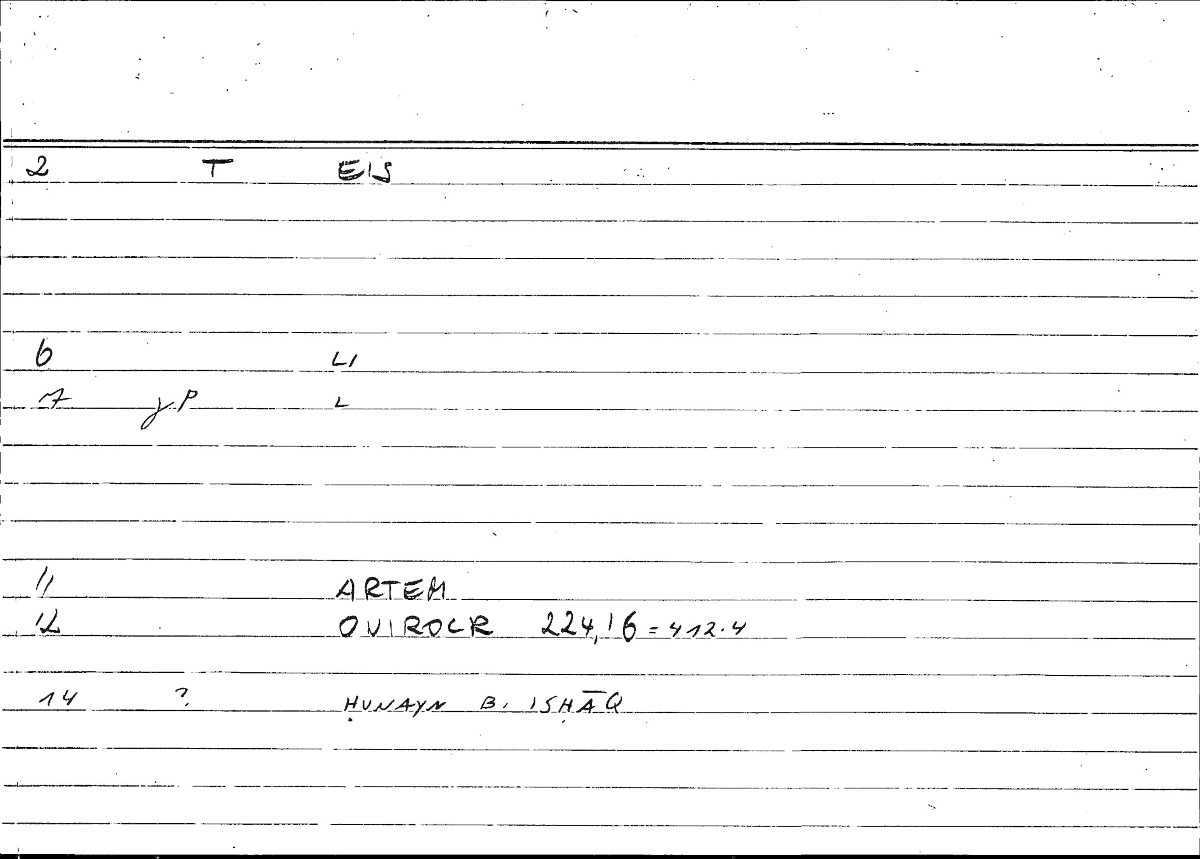 2 T EIS
6 LI
7 γP L
11 ARTEM
12 OVIROCR 224,16 = 412.4
14 ? ḤUNAYN B. ISḤĀQ